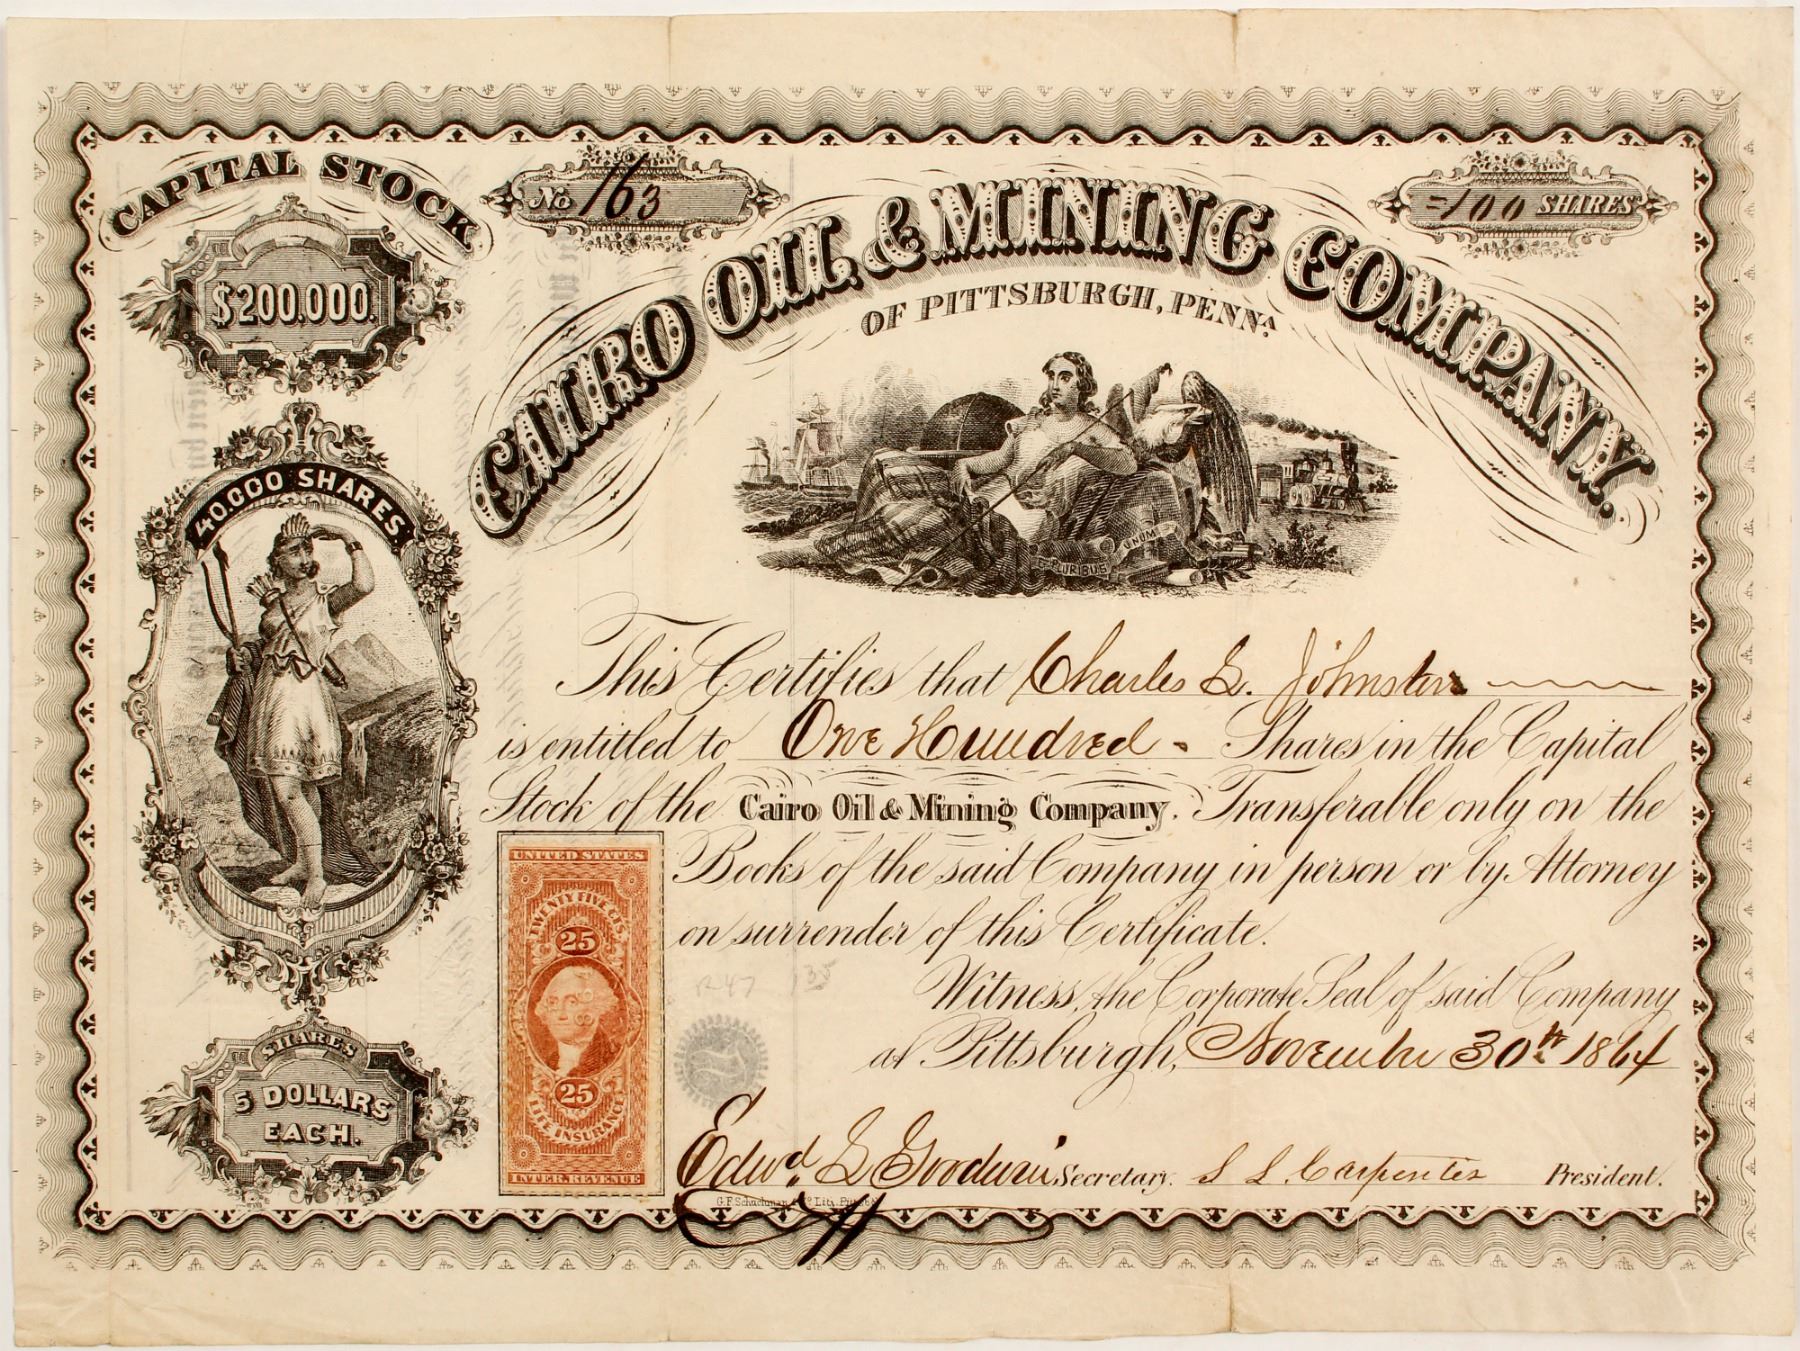 CAPITAL STOCK
$200,000.
No 163
=100 SHARES
CAIRO OIL & MINING COMPANY.
OF PITTSBURGH, PENNA.
40,000 SHARES
UNUM
PLURIBUS
This Certifies that Charles L. Johnston
is entitled to One Hundred - Shares in the Capital
Stock of the Cairo Oil & Mining Company. Transferable only on the
Books of the said Company in person or by Attorney
on surrender of this Certificate.
Witness, the Corporate Seal of said Company
at Pittsburgh, November 30th 1864
SHARES
5 DOLLARS
EACH.
UNITED STATES
TWENTY FIVE CTS.
25
25
LIFE INSURANCE
INTER. REVENUE
R47 135
Edwd. Goodwin Secretary. Carpenter President.
G.F. Schuchman & Co Lith. Pittsb